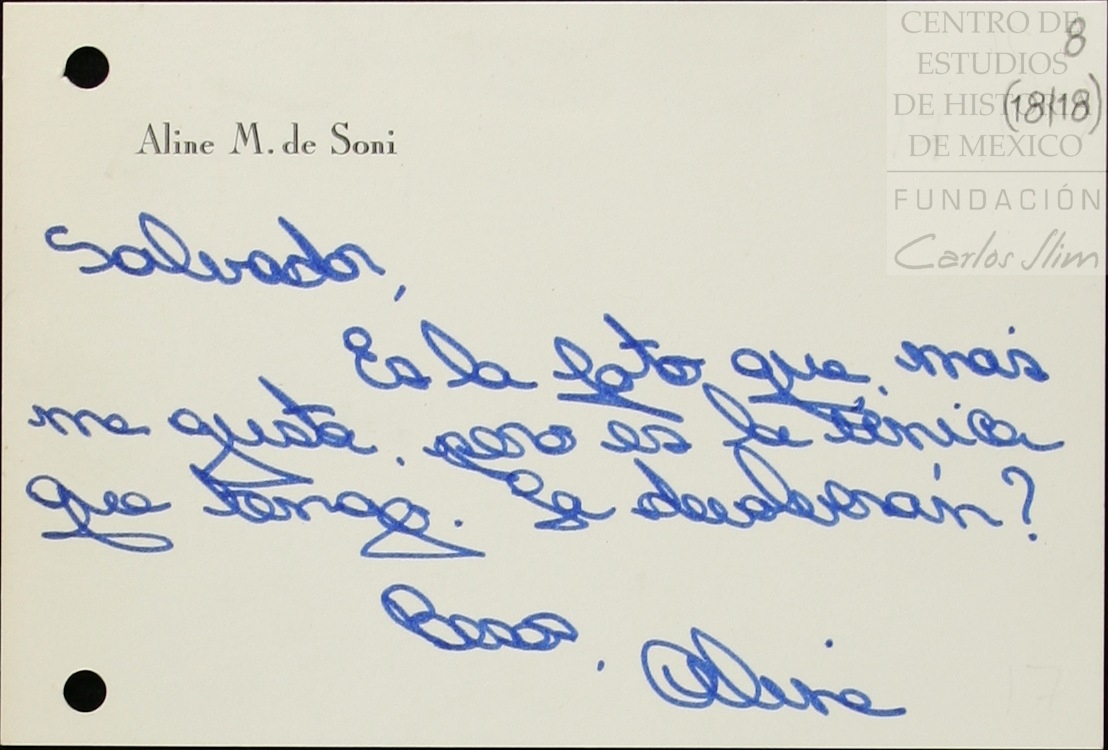 CENTRO DE
ESTUDIOS
DE HISTORIA
DE MEXICO
FUNDACIÓN
Carlos Slim
8
(18/18)
Aline M. de Soni
Salvador,
Es la foto que más
me gusta, pero es la única
que tengo. La devolverán?
Besos,
Aline
17